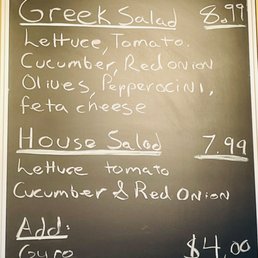 Greek Salad 8.99
Lettuce, Tomato.
Cucumber, Red onion
Olives, Pepperocini,
feta cheese
House Salad 7.99
Lettuce tomato
Cucumber & Red Onion
Add:
Gyro $4.00